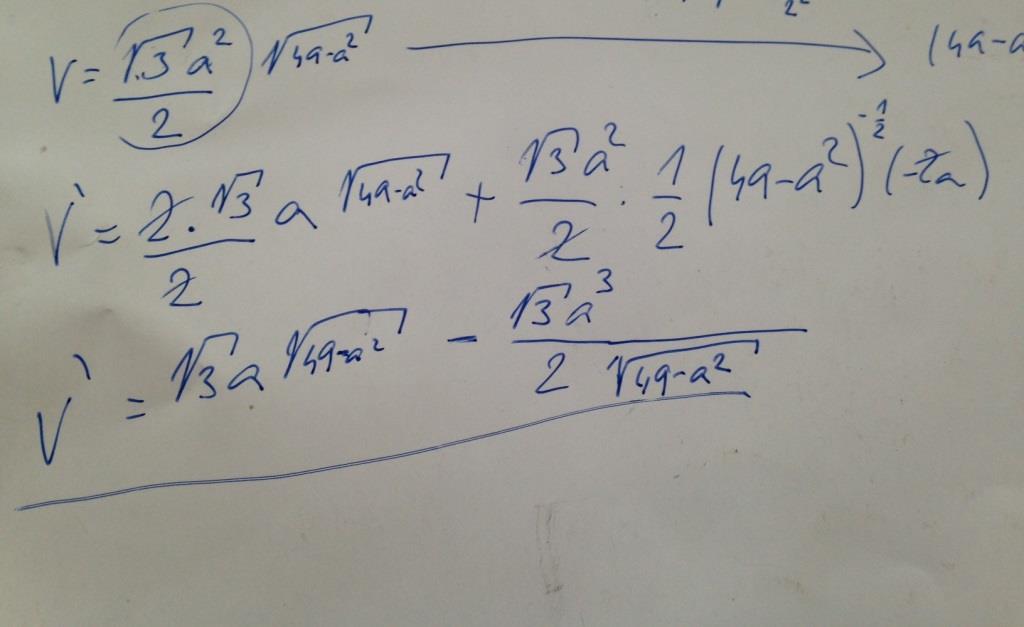 V = √3 a² / 2 √49-a² ⟶ (49-a
V` = 2·√3 / 2 a √49-a² + √3 a² / 2 · 1/2 (49-a²)^-1/2 (-2a)
V` = √3 a √49-a² - √3 a³ / 2 √49-a²